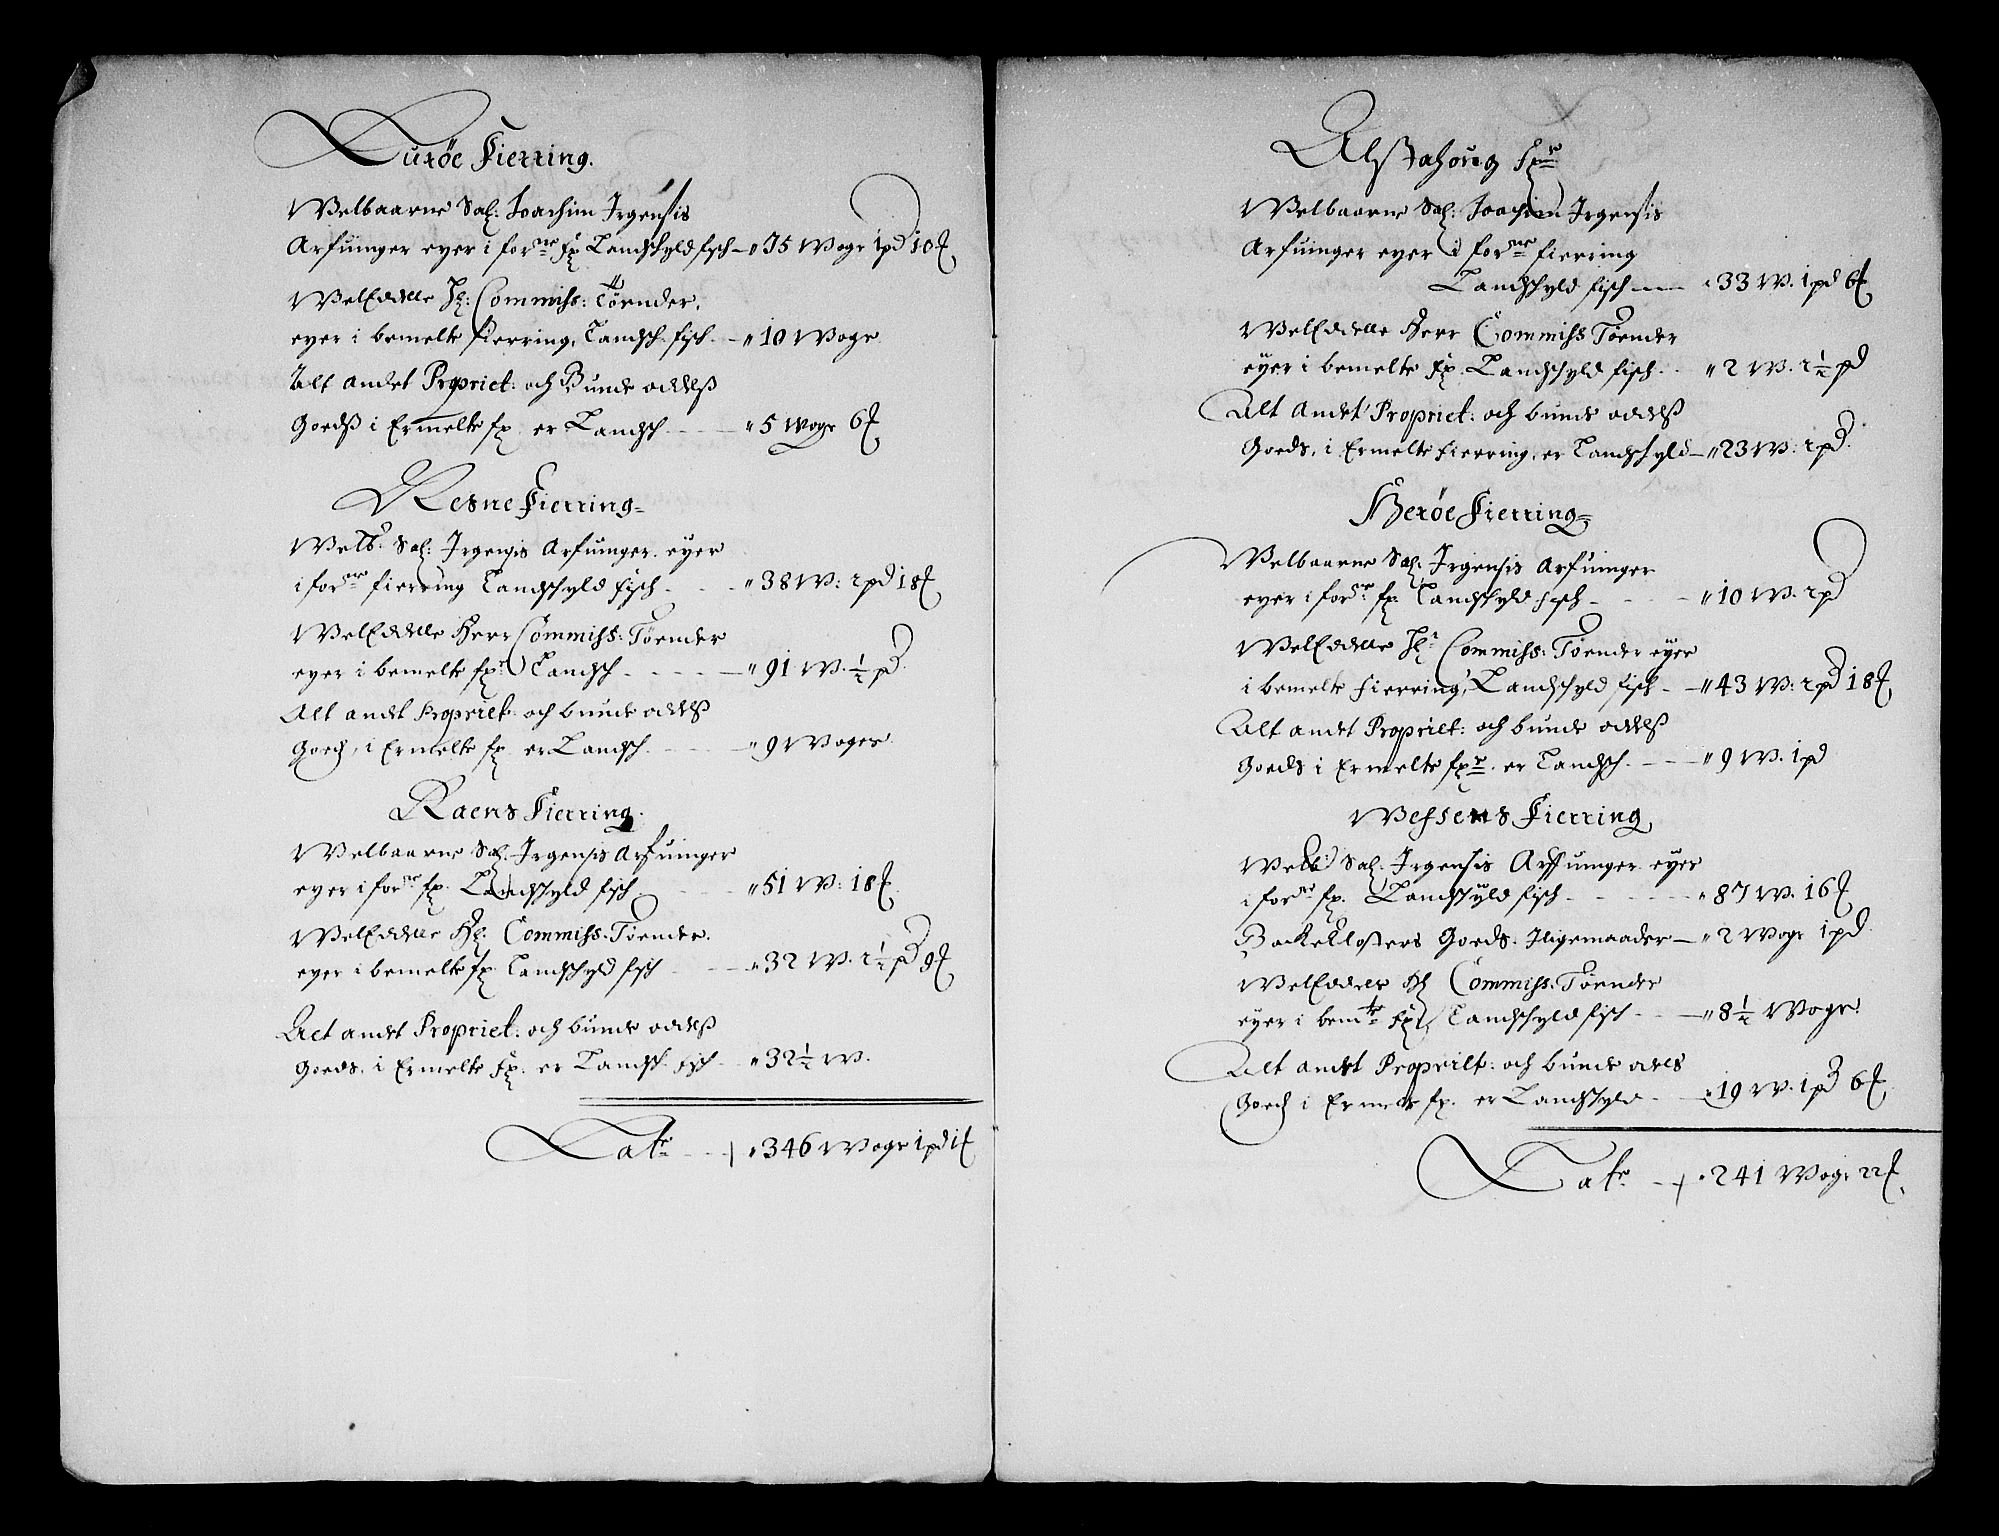 Luröe Fierring.
Welbaarne Sal: Joachim Irgensis
Arfuinger eyer i forne fx Landschyld fisch - 75 Woge 1 pd 10 ℔
WelEdelle Hr: Commiss: Töender,
eyer i bemelte fierring, Landsch. fisch. - 10 Woge
Alt andet Propriet: och Bunde oddelß
Goedß i Ermelte fx. er Landsch. - 5 Woge 6 ℔
Nesne Fierring
Welb: Sal: Irgensis Arfuinger eyer
i forne fierring Landschyld fisch. - 38 W: 2 pd 18 ℔
WelEdelle Herr Commiss: Töender
eyer i bemelte fxr: Landsch - 91 W. ½ pd.
Alt andet Propriet: och bunde oddelß
Goeds, i Ermelte fx. er Landsch. - 9 Woger
Raens Fierring.
Welbaarne Sal. Irgensis Arfuinger
eyer i forne fx. Landschyld fisch - 51 W: 18 ℔
WelEdelle Hr: Commiss. Töender.
eyer i bemelte fx. Landschyld fisch - 32 W. 2½ pd 9 ℔
Alt andet Propriet: och bunde oddelß
Goeds, i Ermelte fx. er Landsch. fisch - 32½ W.
Late - 346 Woge 1 pd 1 ℔
Alstahoug fxr
Welbaarne Sal: Joachim Irgensis
Arfuinger eyer i forne fierring
Landschyld fisch - 33 W. 1 pd 6 ℔
WelEdelle Herr Commiss Töender
eyer i bemelte fx. Landschyld fisch - 2 W. 2½ pd
Alt Andet Propriet: och bunde oddelß
Goeds, i Ermelte fierring, er Landschyld - 23 W: 2 pd.
Heröe Fierring
Welbaarne Sal. Irgensis Arfuinger
eyer i forne fx. Landschyld fisch - 10 W. 2 pd
WelEdelle Hr Commiss: Töender eyer
i bemelte fierring, Landschyld fisch - 43 W: 2 pd 18 ℔
Alt andet Propriet: och bunde oddelß
Goeds i Ermelte fxr. er Landsch. - 9 W. 1 pd
Wefsens Fierring
Welb: Sal. Irgensis Arffuinger eyer
i forne fx. Landschyld fisch - 87 W. 16 ℔
Backe Closters Goeds. - 2 Woge 1 pd
WelEddele Hr Commiss: Töender
eyer i bemte fx, Landschyld fisch - 8½ Woge
Alt andet Propriet: och bunde odels
Goeds i Ermelte fx. er Landschyld - 19 W. 1 pd 6 ℔
Late - 241 Woge 22 ℔